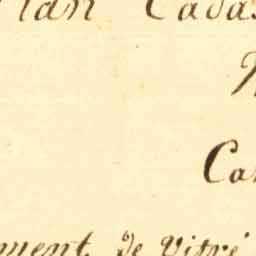 Plan Cadas
Ca
ment de Vitré